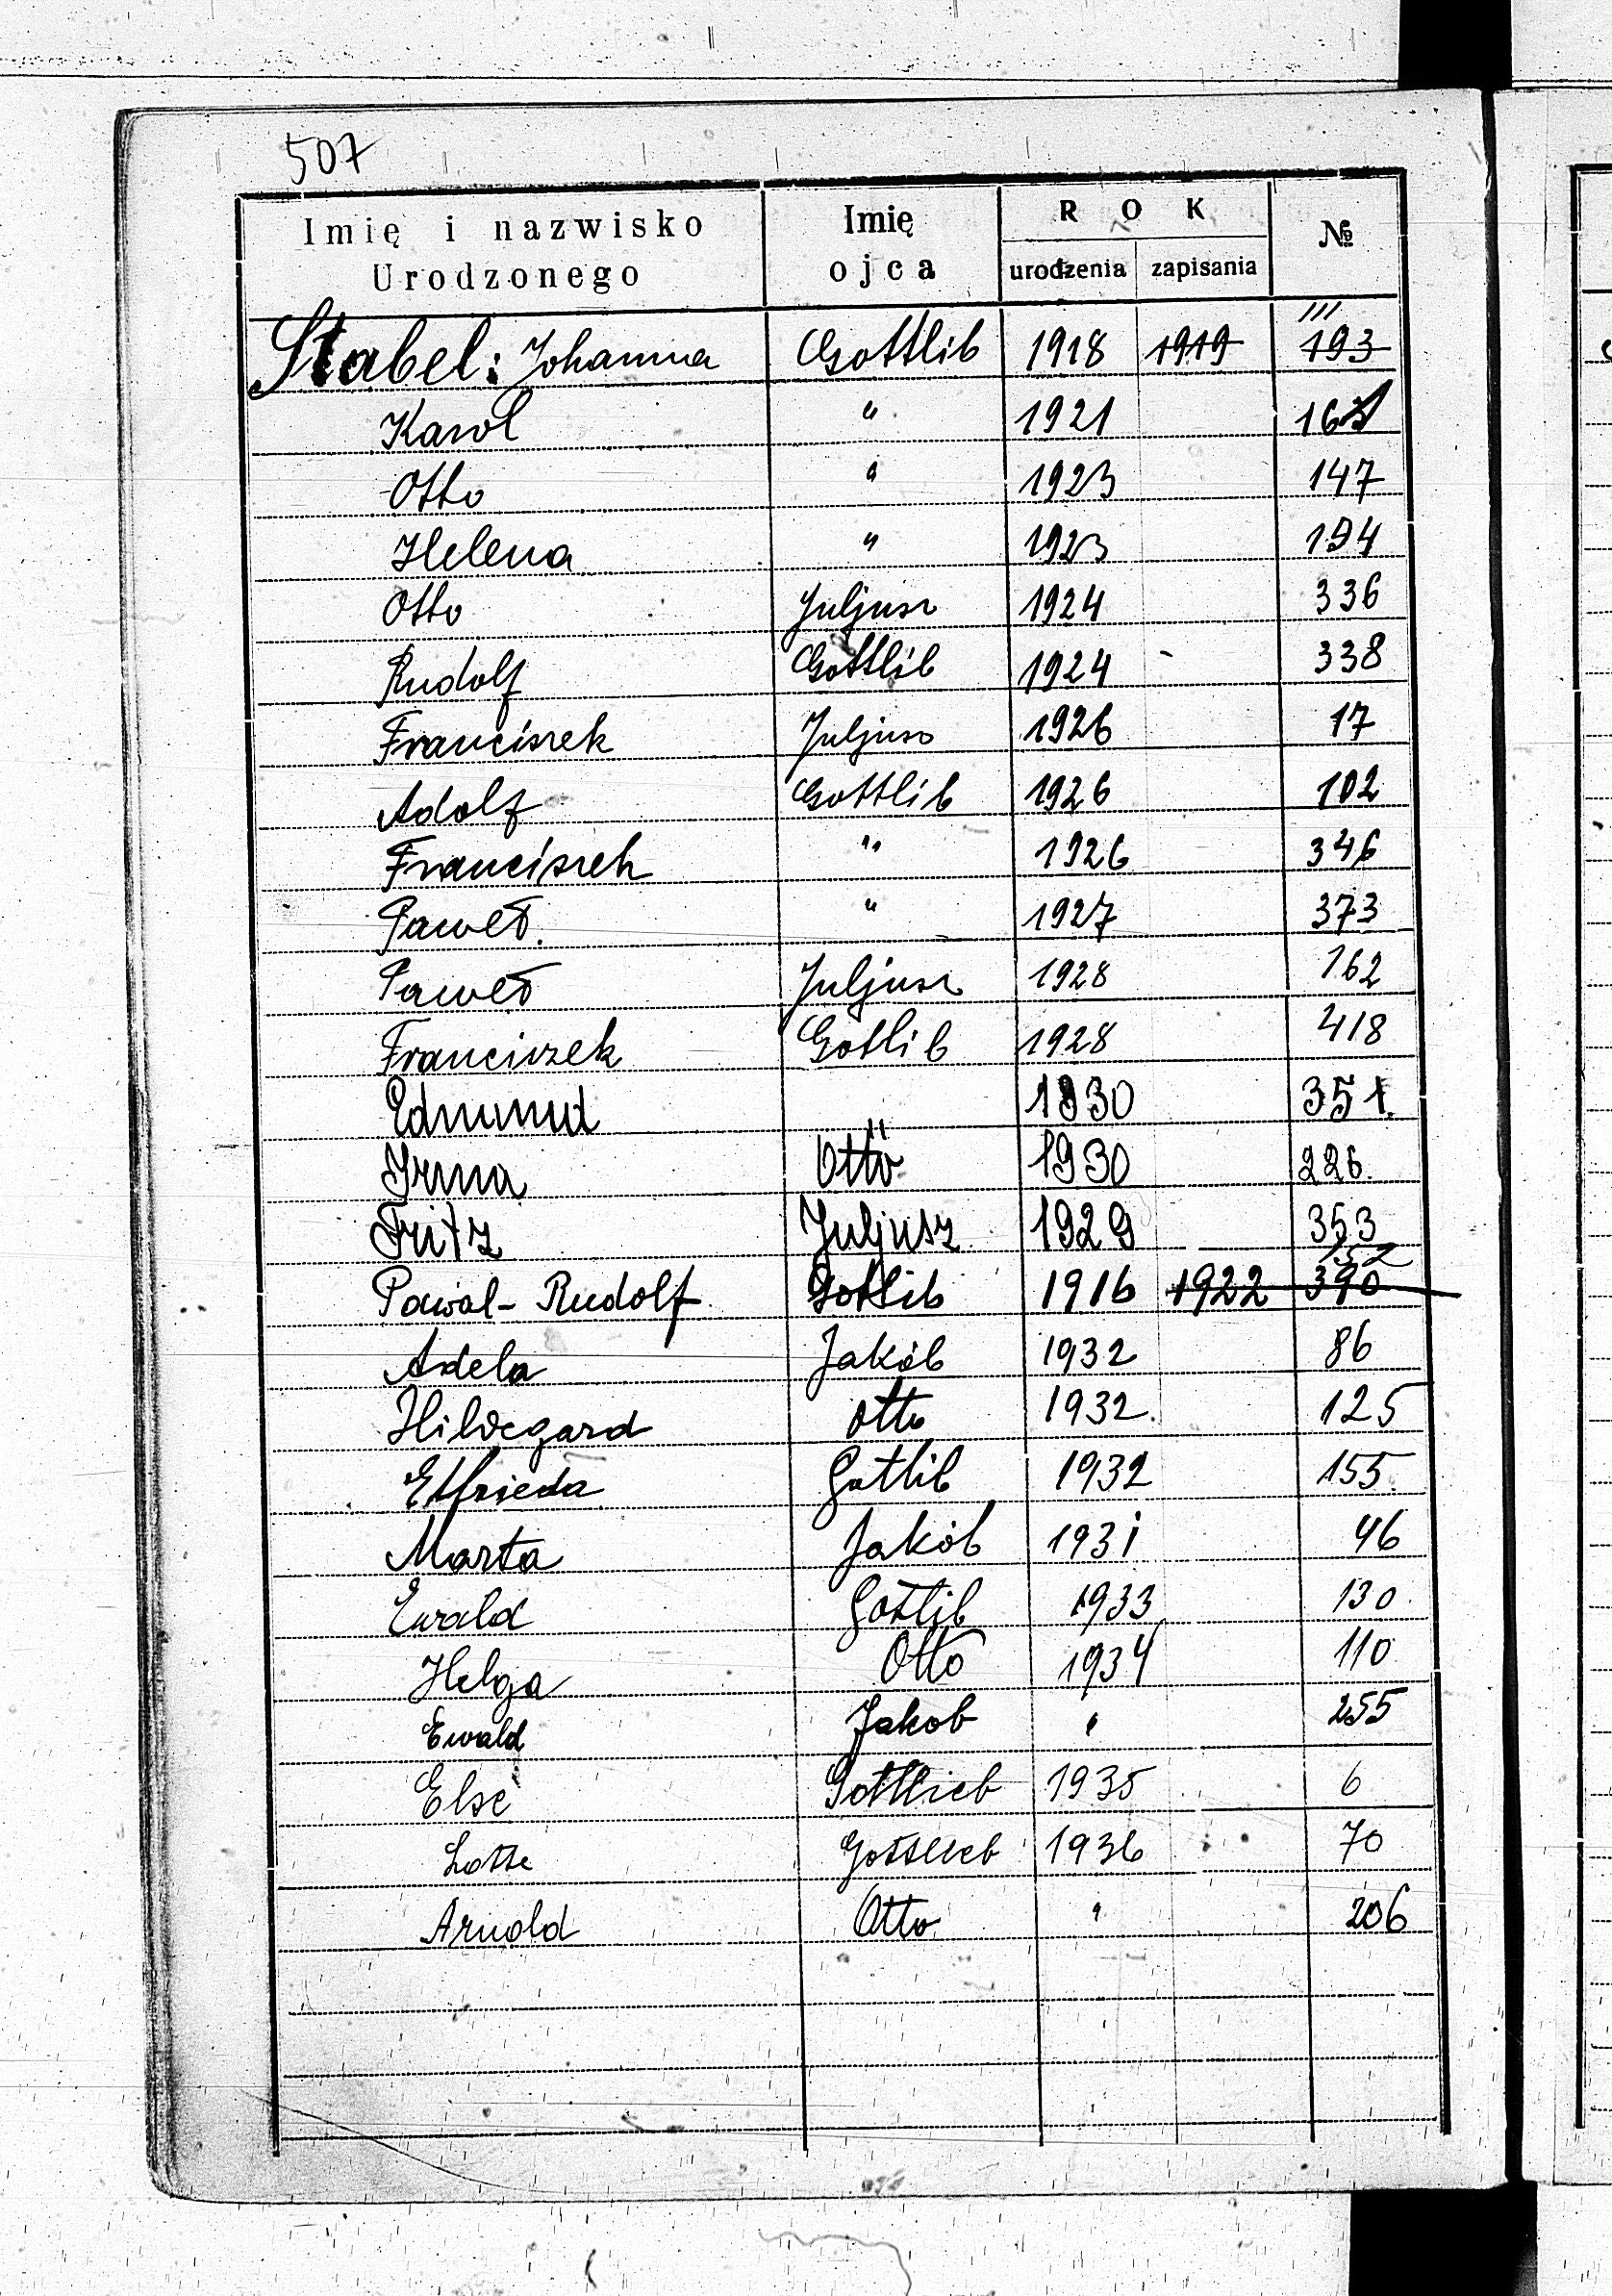 507
Imię i nazwisko Urodzonego Imię ojca ROK urodzenia zapisania №
Stabel: Johanna Gottlib 1918 1919 193 111
Karol " 1921
Otto " 1923 147
Helena " 1923 194
Otto Juljusz 1924 336
Rudolf Gottlib 1924 - 338
Franciszek Juljusz 1926 17
Adolf Gottlib 1926 102
Franciszek " 1926 346
Paweł. " 1927 373
Paweł Juljusz 1928 162
Franciszek Gotlib 1928 418
Edmund " 1930 351.
Irma Otto 1930 226.
Fritz Juljusz 1929 353
Pawal-Rudolf Gotlib 1916 1922 390 152
Adela Jakób 1932 86
Hildegard Otto 1932. 125
Elfrieda Gotlib 1932 155.
Marta Jakób 1931 46
Ewald Gotlib 1933 130.
Helga Otto 1934 110
Ewald Jakob " 255
Else Gottlieb 1935 6
Lotte Gottlieb 1936 70
Arnold Otto " 206